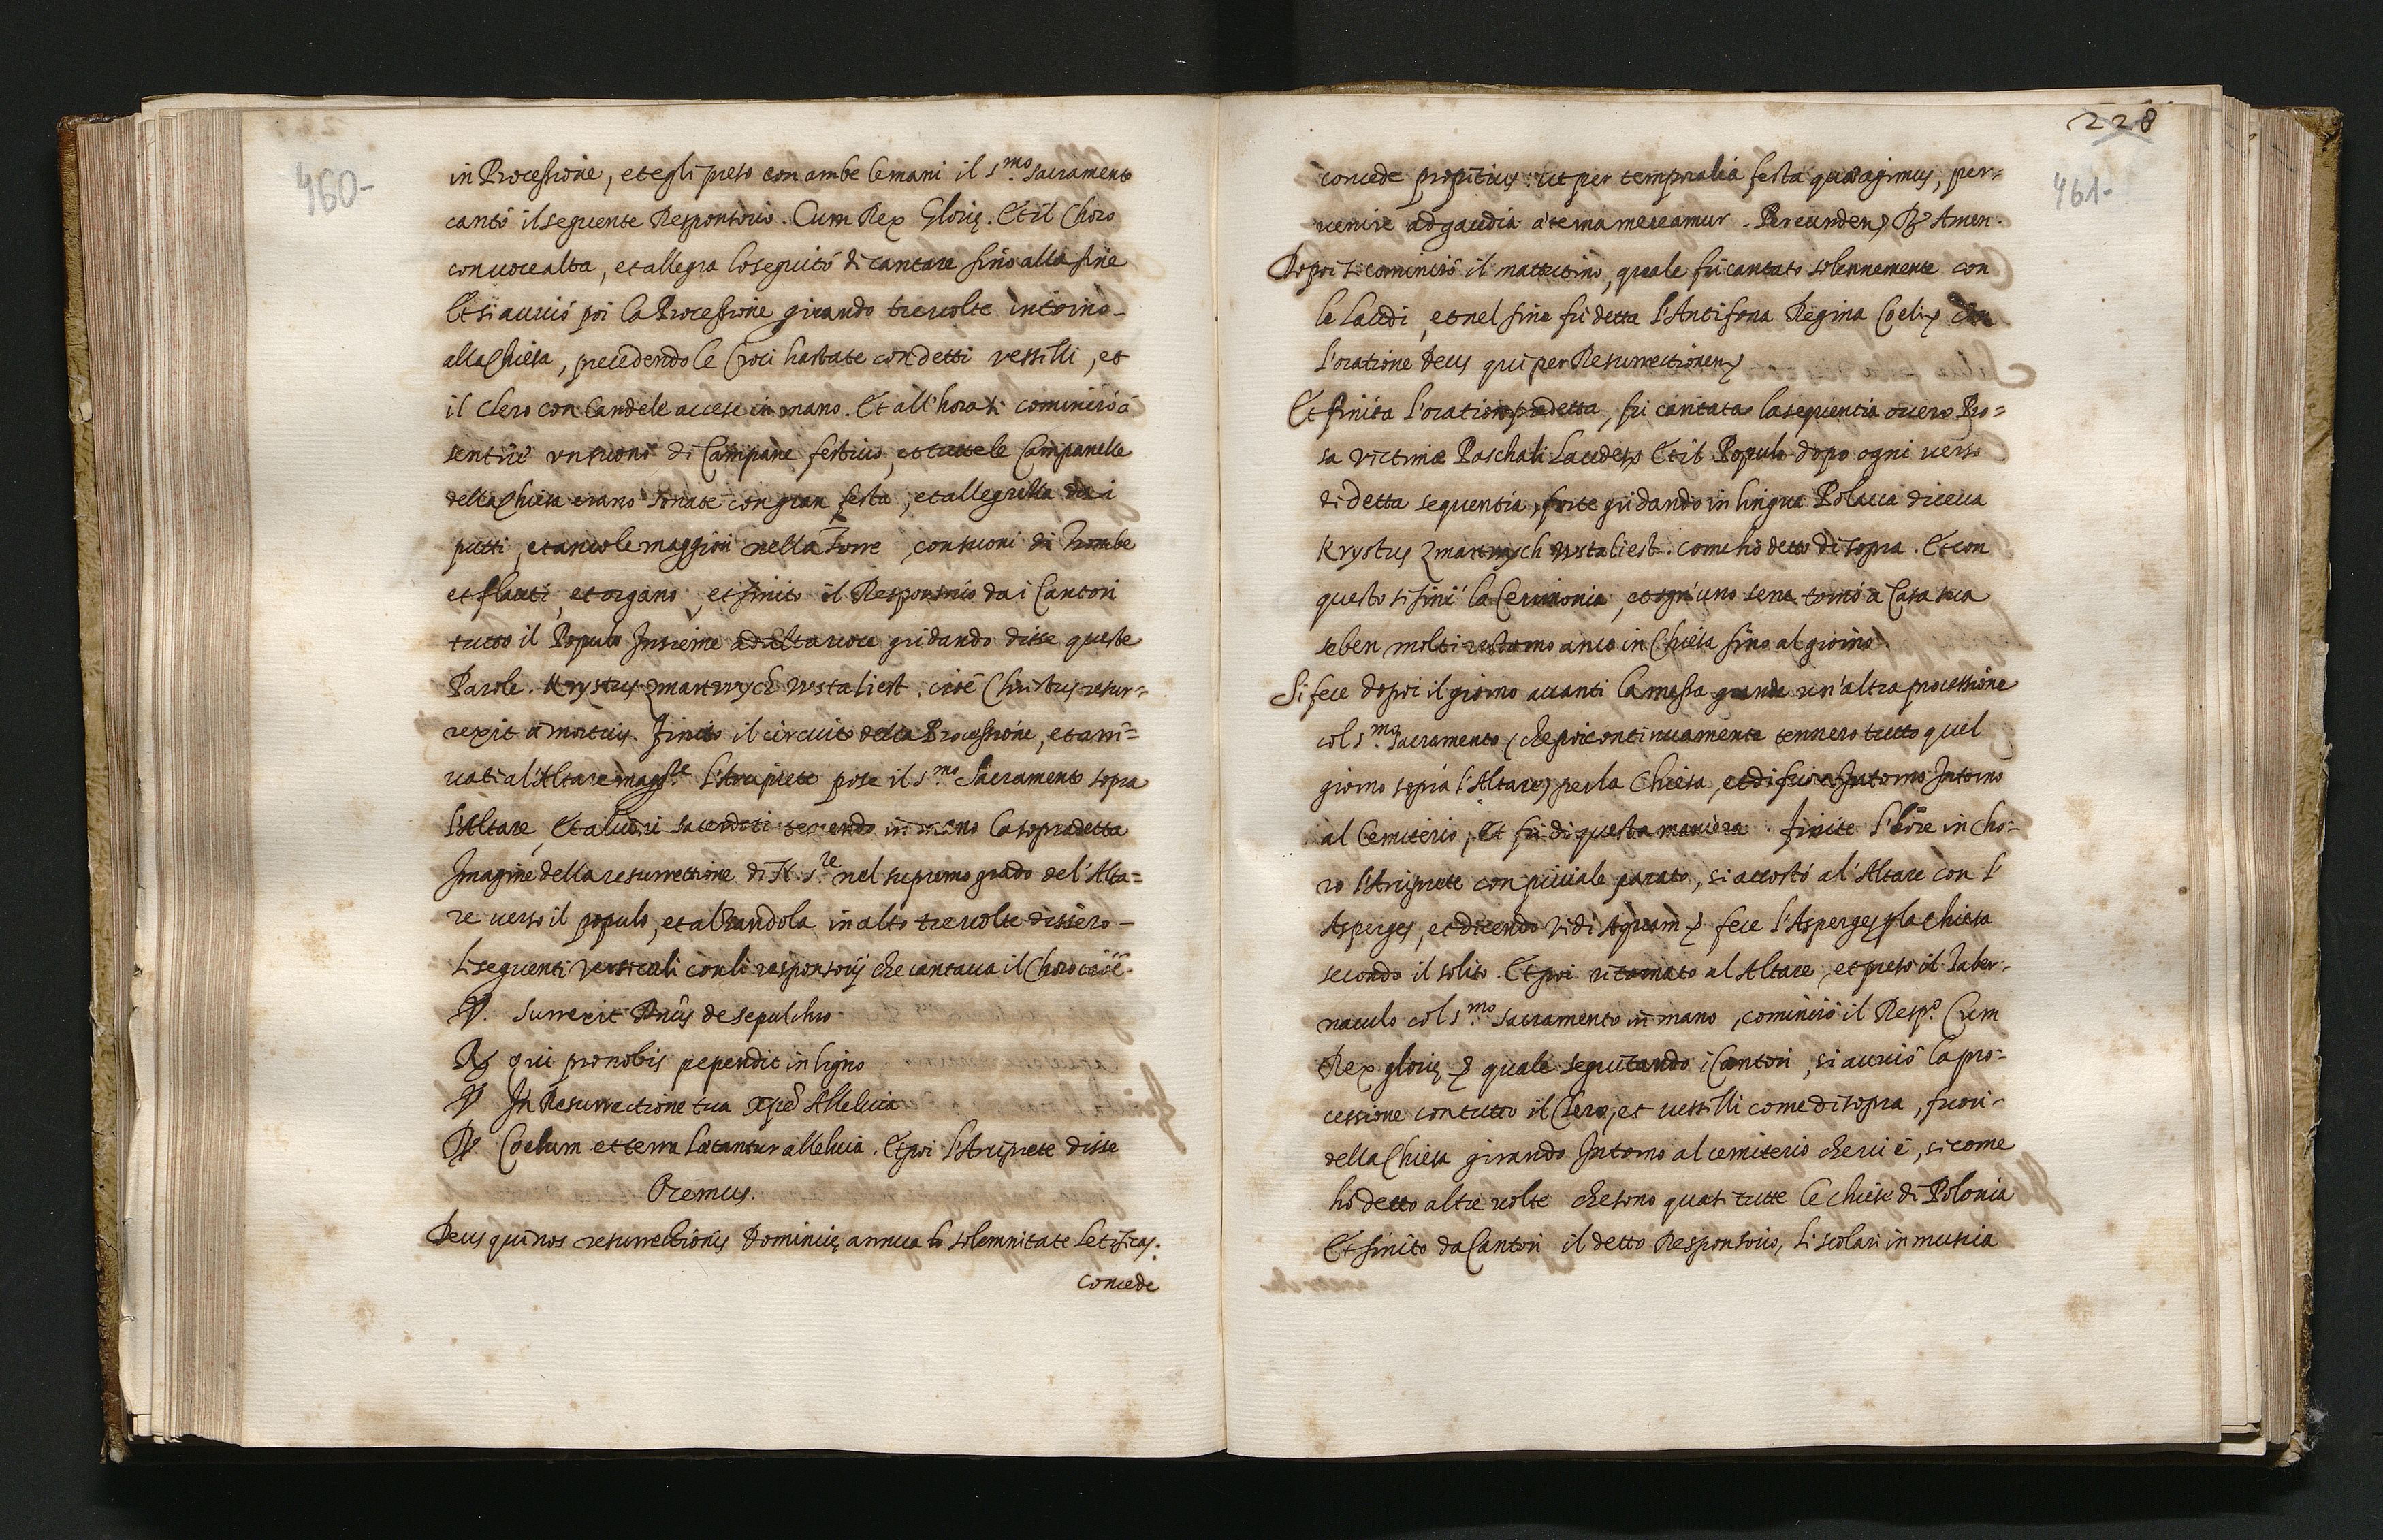 460-
in Processione, et egli preso con ambe le mani il s.mo sacramento
cantó il seguente Responsorio. Cum Rex Glorię. Et il Choro
con uoce alta, et allegra lo seguitó di cantare fino alla fine
Et si auuió poi la Processione girando tre uolte intorno-
alla Chiesa, precedendo le Croci hastate con detti vessilli, et
il clero con Candele accese in mano. Et all'hora si cominció á
sentire un suono di Campane festiuo, et tutte le Campanelle
della Chiesa erano sonate con gran festa, et allegrezza da i
putti, et anco le maggiori nella Torre, con suoni di Trombe
et flauti, et organo, et finito il Responsorio da i Cantori
tutto il Populo Insieme ad alta uoce gridando disse queste
Parole. Krystus zmartwych wstaliest, cioé Christus resur-
rexit á mortuis. Finito il circuito della Processione, et arri=
uati al'Altare magg.re l'Arciprete pose il s.mo Sacramento sopra
l'Altare, Et alcuni sacerdoti tenendo in mano la sopradetta
Imagine della resurrettione di N. s.re nel supremo grado del'Alta=
re uerso il populo, et alzandola in alto tre uolte dissero-
li seguenti versiculi con li responsorij che cantaua il Choro cioé-
℣. Surrexit Dñs de sepulchro-
℟ qui pro nobis pependit in ligno
℣ In Resurrectione tua xp̃e Alleluia
℟. Coelum et terra lætantur alleluia. Et poi l'Arciprete disse
Oremus.
Deus qui nos resurrectionis Dominicę annua solemnitate letificas:
concede
228
461-
concede propitius: ut per temporalia festa quæ agimus, per=
uenire ad gaudia æterna mereamur. Per eundem ℟ Amen.
Dopoi si cominció il mattutino, quale fu cantato solennemente con
le Laudi, et nel fine fu detta l'Antifona Regina Coeli con
l'oratione Deus qui per Resurrectionem
Et finita l'oratione predetta, fu cantata la sequentia ouero Pro=
sa victimæ Paschali Laudes Et il Populo dopo ogni uerso
di detta sequentia, forte gridando in lingua Polacca diceua
Krystus zmartwych wstaliest. come hó detto di sopra. Et con
questo si finí la Cerimonia, et ogn'uno se ne tornó a Casa sua
se ben molti restorno anco in Chiesa fino al giorno.
Si fece dopoi il giorno auanti la messa grande un'altra processione
col s.mo Sacramento (che poi continuamente tennero tutto quel
giorno sopra l'Altare) per la Chiesa, et di fuora Intorno Intorno
al Cemiterio, Et fu di questa maniera. Finite l'hore in cho=
ro l'Arciprete con piuiale parato, si accostó al'Altare con l'
Asperges, et dicendo Vidi Aquam fece l'Asperges p la Chiesa
secondo il solito. Et poi ritornato al Altare, et preso il Taber-
naculo col s.mo sacramento in mano, cominció il Resp.o Cum
Rex glorię quale seguitando i Cantori, si auuió la pro=
cessione con tutto il Clero, et uessilli come di sopra, fuori-
della Chiesa girando Intorno al cemiterio che ui é, si come
hó detto altre uolte che sono quasi tutte le chiese di Polonia
Et finito da Cantori il detto Responsorio, li scolari in musica